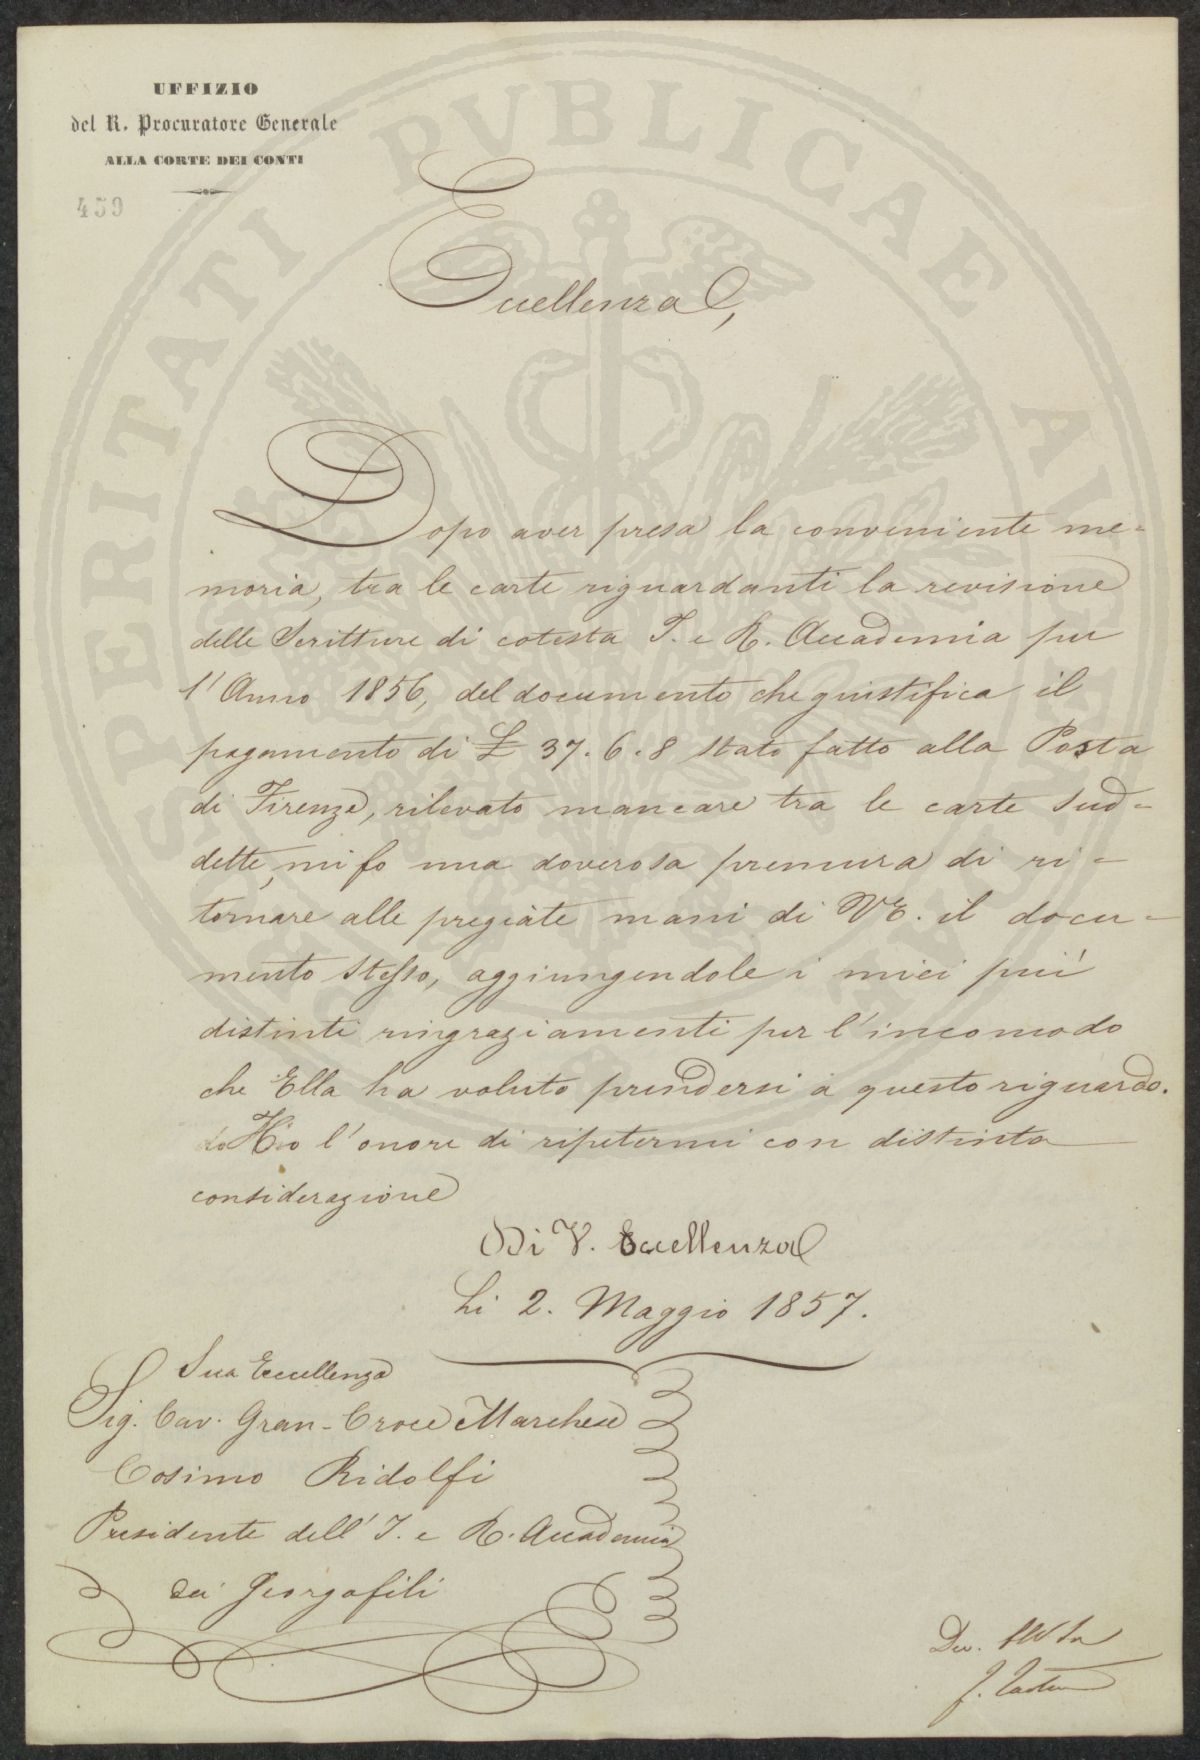 UFFIZIO
del R. Procuratore Generale
ALLA CORTE DEI CONTI
459
PROSPERITATI PVBLICAE AVGENDAE
Eccellenza,
Dopo aver presa la conveniente me=
moria, tra le carte riguardanti la revisione
delle Scritture di cotesta I. e R. Accademia per
l'Anno 1856, del documento che giustifica il
pagamento di £ 37.6.8 stato fatto alla Posta
di Firenze, rilevato mancare tra le carte sud=
dette, mi fo una doverosa premura di ri=
tornare alle pregiate mani di VE. il docu=
mento stesso, aggiungendole i miei più
distinti ringraziamenti per l'incomodo
che Ella ha voluto prendersi a questo riguardo.
Ho l'onore di ripetermi con distinta
considerazione
Di V. Eccellenza
Li 2. Maggio 1857.
Sua Eccellenza
Sig. Cav. Gran-Croce Marchese
Cosimo Ridolfi
Presidente dell'I. e R. Accademia
dei Georgofili